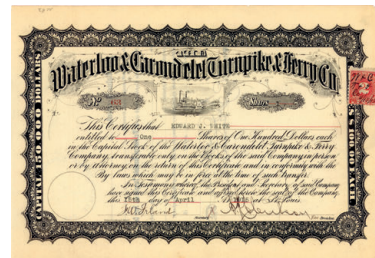 Waterloo & Carondelet Turnpike & Ferry Co.
No
Shares
CAPITAL 150,000 DOLLARS
This Certifies that EDWARD J. WHITE
entitled to One Shares of One Hundred Dollars each
in the Capital Stock of the Waterloo & Carondelet Turnpike & Ferry
Company, transferable only on the Books of the said Company in person
or by Attorney on the return of this Certificate and in conformity with the
By laws which may be in force at the time of such transfer.
In Testimony whereof, the President and Secretary of said Company
have signed this Certificate and affixed hereto the seal of the Company
this 15th day of April at St. Louis
Secretary
President